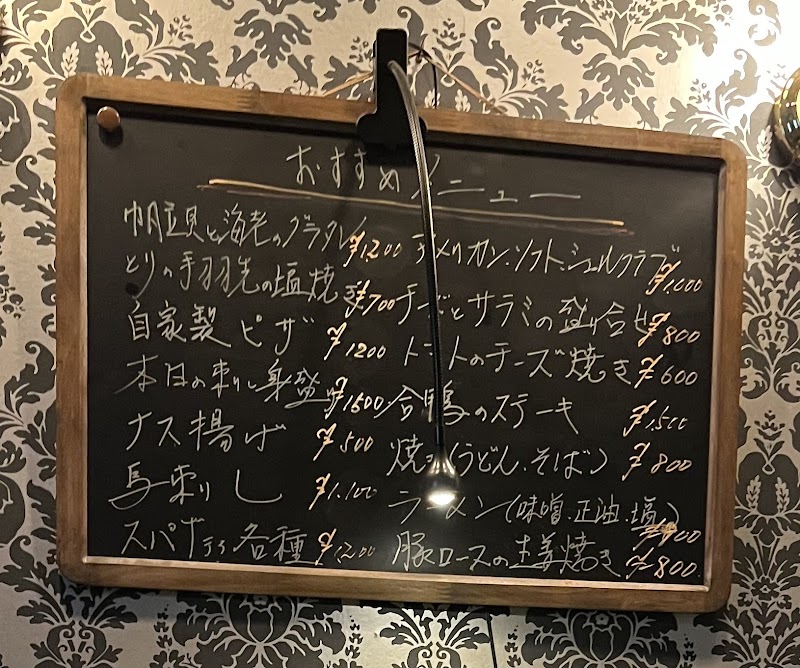 おすすめメニュー
帆立貝と海老のグラタン ¥1,200
とりの手羽先の塩焼き ¥700
自家製ピザ ¥1200
本日の刺し身盛り ¥1,500
ナス揚げ ¥500
馬刺し ¥1,100
スパゲティ各種 ¥1,200
アメリカン・ソフト・シェルクラブ ¥1,000
チーズとサラミの盛り合せ ¥800
トマトのチーズ焼き ¥600
合鴨のステーキ ¥1,500
焼き(うどん、そば) ¥800
ラーメン(味噌、正油、塩)
豚ロースの生姜焼き ¥800